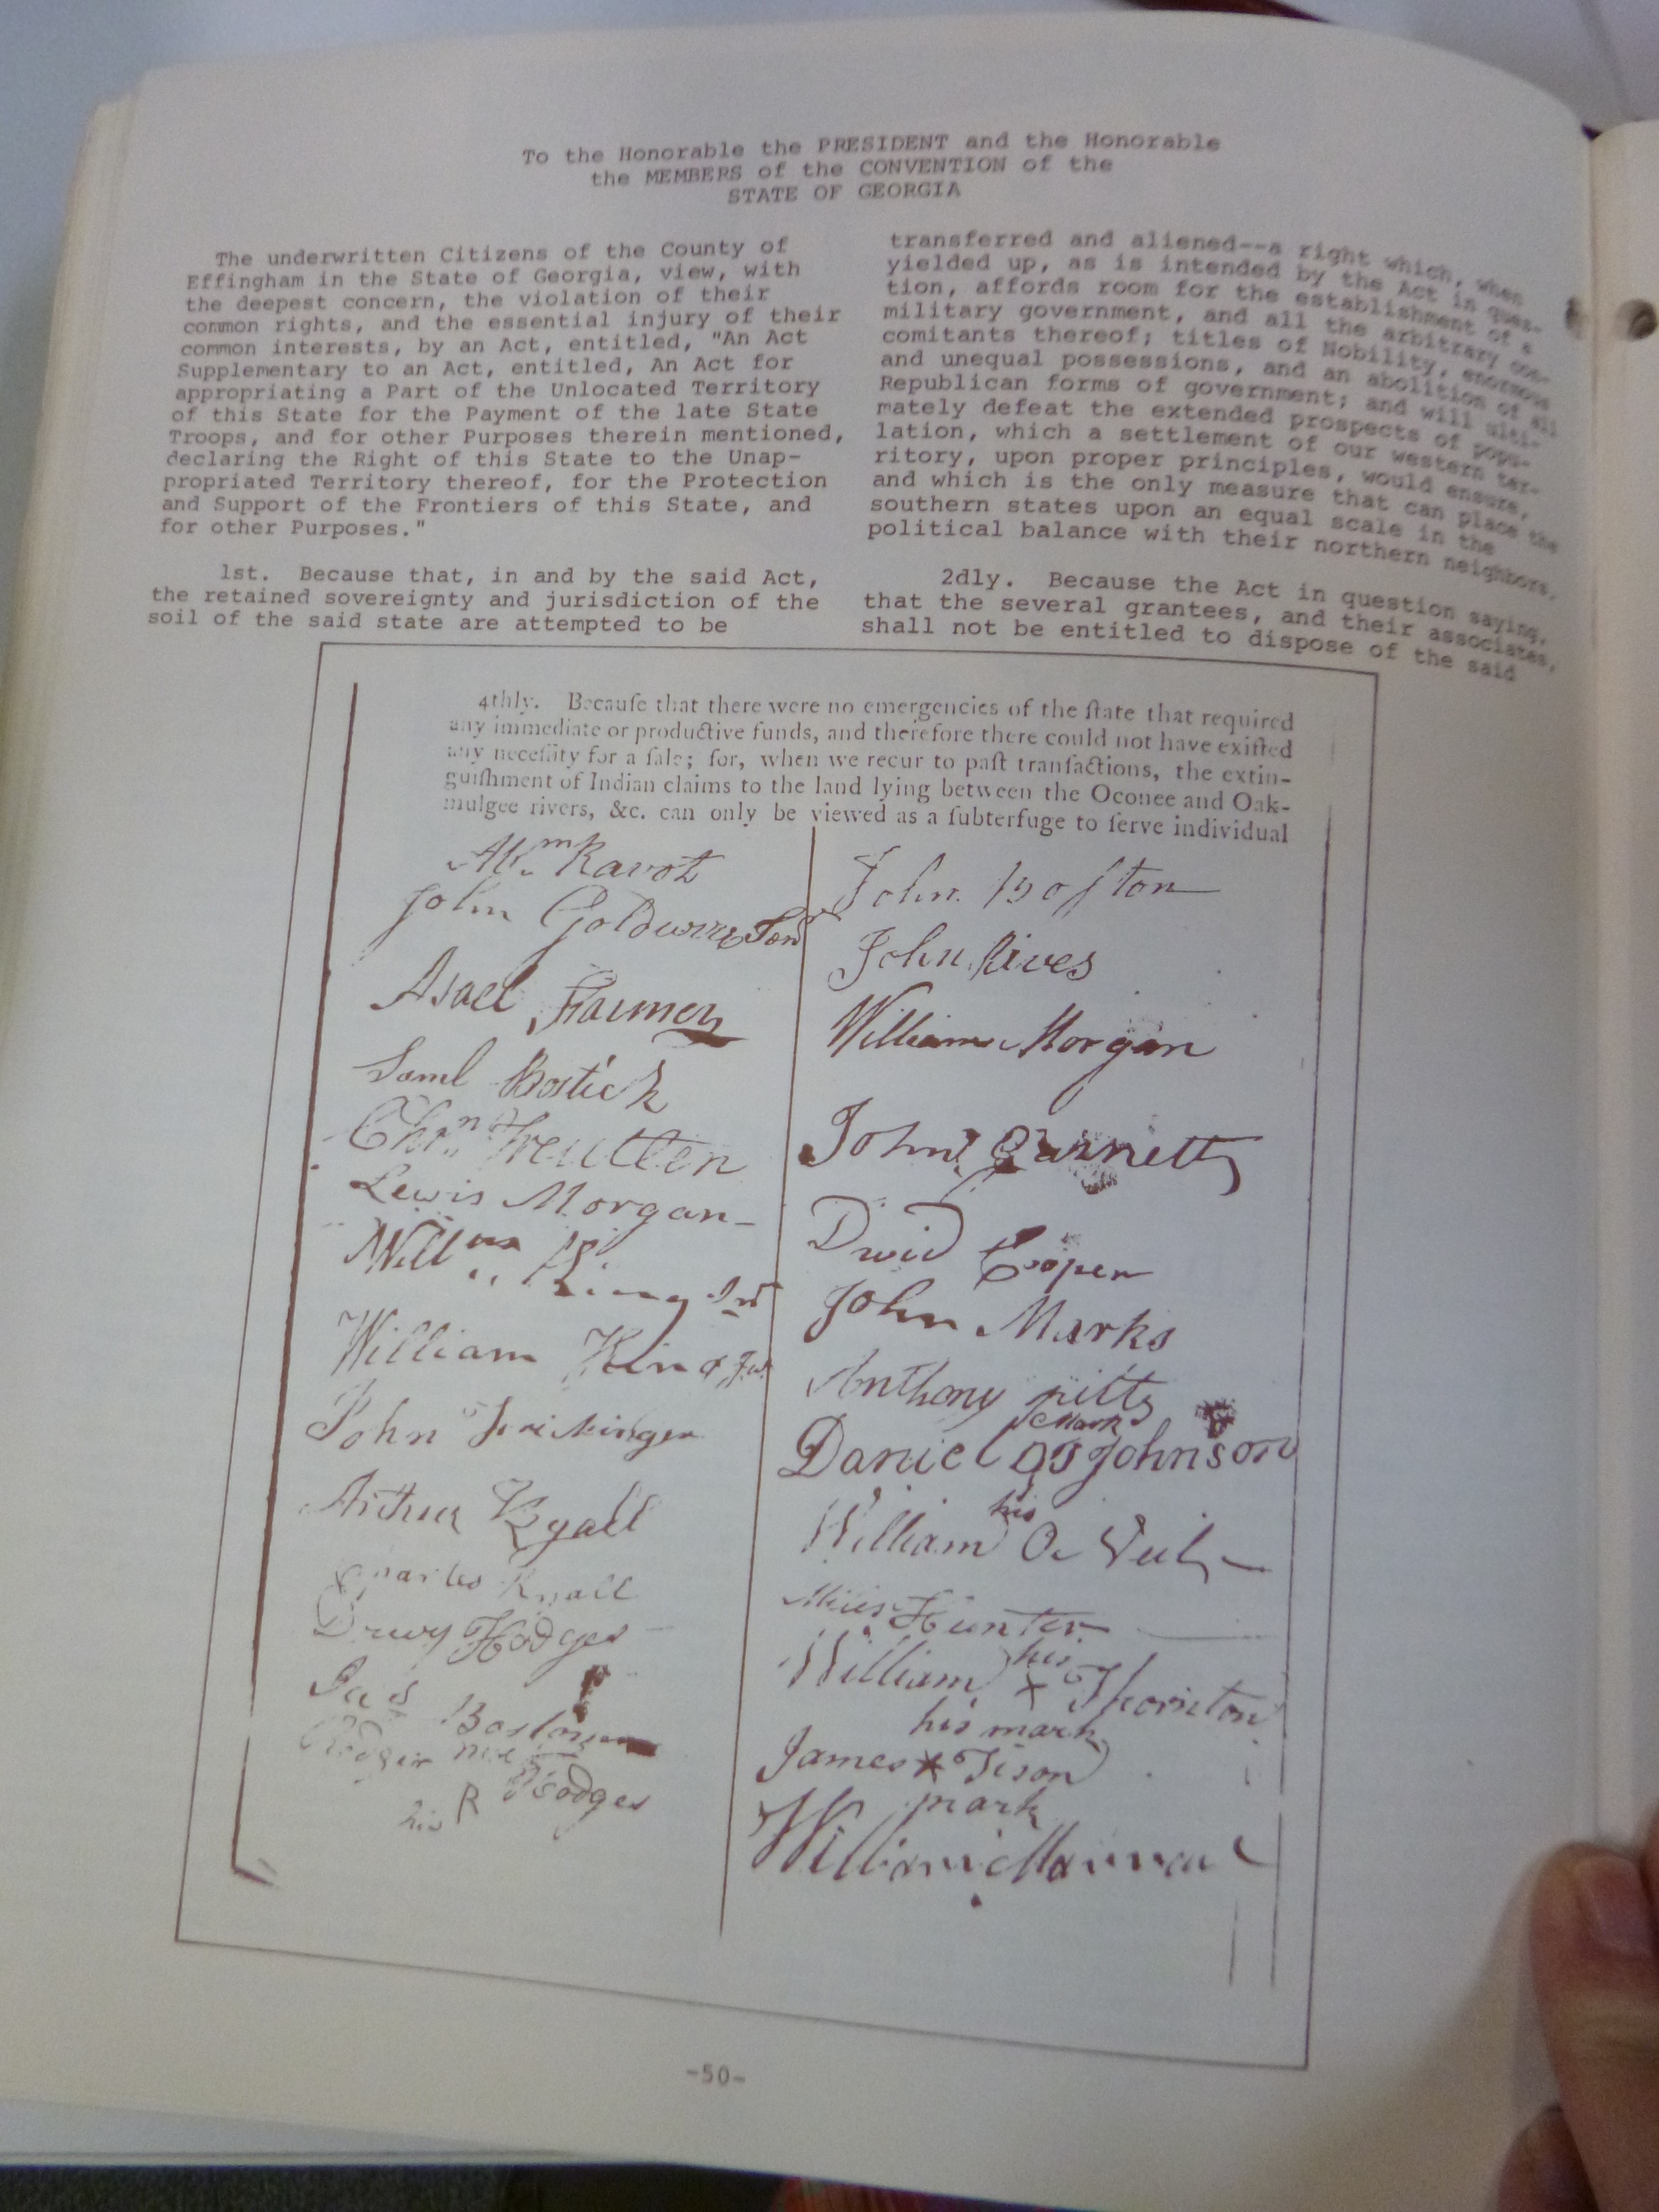 To the Honorable the PRESIDENT and the Honorable
the MEMBERS of the CONVENTION of the
STATE OF GEORGIA
The underwritten Citizens of the County of
Effingham in the State of Georgia, view, with
the deepest concern, the violation of their
common rights, and the essential injury of their
common interests, by an Act, entitled, "An Act
Supplementary to an Act, entitled, An Act for
appropriating a Part of the Unlocated Territory
of this State for the Payment of the late State
Troops, and for other Purposes therein mentioned,
declaring the Right of this State to the Unap-
propriated Territory thereof, for the Protection
and Support of the Frontiers of this State, and
for other Purposes."
1st. Because that, in and by the said Act,
the retained sovereignty and jurisdiction of the
soil of the said state are attempted to be
transferred and aliened--a right which, when
yielded up, as is intended by the Act in ques-
tion, affords room for the establishment of a
military government, and all the arbitrary con-
comitants thereof; titles of Nobility, enormous
and unequal possessions, and an abolition of all
Republican forms of government; and will ulti-
mately defeat the extended prospects of popu-
lation, which a settlement of our western ter-
ritory, upon proper principles, would ensure,
and which is the only measure that can place the
southern states upon an equal scale in the
political balance with their northern neighbors.
2dly. Because the Act in question saying,
that the several grantees, and their associates,
shall not be entitled to dispose of the said
4thly. Becauſe that there were no emergencies of the ſtate that required
any immediate or productive funds, and therefore there could not have exiſted
any neceſſity for a ſale; for, when we recur to paſt tranſactions, the extin-
guiſhment of Indian claims to the land lying between the Oconee and Oak-
mulgee rivers, &c. can only be viewed as a ſubterfuge to ſerve individual
Ravot
John
Asael
Saml Bostick
Chrn Treutlen
Lewis Morgan
Willm King
William King Jur
John
Arthur Ryall
Charles Ryall
Drury Hodges
Jas Boston
Hodges
his R
John Boſton
John Rives
William Morgan
John Garnett
David Cooper
John Marks
Anthony pitts
Mark
Daniel Johnson
his
William
Hunter
his
William x Thornton
his mark
James x Tison
mark
William
-50-